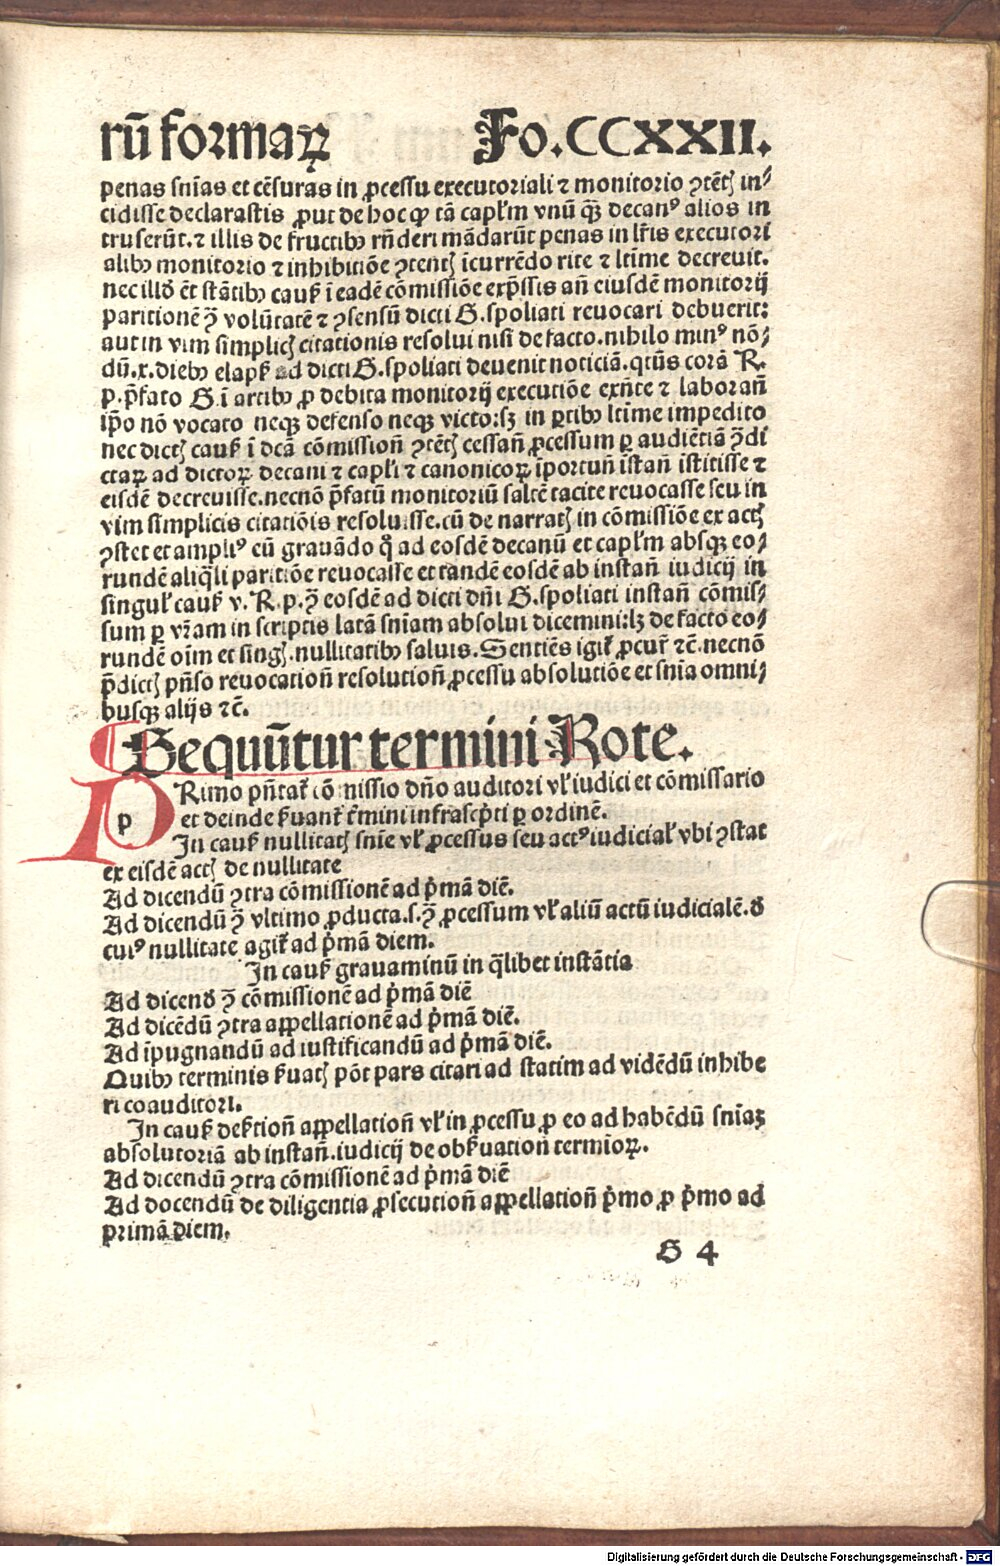 rū formaꝝ Fo.CCXXII.
penas snīas et cēsuras in ꝓcessu executoriali ⁊ monitorio ꝯtētꝭ in⸗
cidisse declarastis ꝓut de hoc ꝙ tā capłm vnū qꝫ decanꝰ alios in
truserūt.⁊ illis de fructibꝰ rn̄deri mādarūt penas in lr̄is executori
alibꝰ monitorio ⁊ inhibitiōe ꝯtentꝭ īcurrēdo rite ⁊ ltīme decreuit.
nec illoꝝ ēt stātibꝰ cauſ ī eadē cōmissiōe exp̄ssis an̄ eiusdē monitorij
paritionē ꝯ̄ volūtatē ⁊ ꝯsensū dicti G.spoliati reuocari debuerit:
aut in vim simplicꝭ citationis resolui nisi de facto.nihilo minꝰ nō⸗
dū.x.diebꝰ elapſ ad dicti G.spoliati deuenit noticiā.qtūs corā R.
p.p̄fato G.ī artibꝰ ꝓ debita monitorij executiōe exn̄te ⁊ laboran̄
ip̄o nō vocato neqꝫ defenso neqꝫ victo:sꝫ in ꝑtibꝰ ltīme impedito
nec dictꝭ cauſ ī dcā cōmission̄ ꝯtētꝭ cessan̄ ꝓcessum ꝑ audiētiā ꝯ̄di
ctaꝝ ad dictoꝝ decani ⁊ capłi ⁊ canonicoꝝ īportun̄ īstan̄ īstitisse ⁊
eisdē decreuisse.necnō p̄fatū monitoriū saltē tacite reuocasse seu in
vim simplicis citatiōis resoluisse.cū de narratꝭ in cōmissiōe ex actꝭ
ꝯstet et ampliꝰ cū grauādo qͥ ad eosdē decanū et capłm absqꝫ eo⸗
rundē aliqͣli paritiōe reuocasse et tandē eosdē ab instan̄ iudicij in
singuł cauſ v.R.p.ꝯ̄ eosdē ad dicti dn̄i G.spoliati instan̄ cōmis⸗
sum ꝑ vr̄am in scriptis latā snīam absolui dicemini:lꝫ de facto eo⸗
rundē oīm et singꝭ.nullitatibꝰ saluis.Sentiēs igiť ꝓcuř ⁊c̄.necnō
p̄dictꝭ pn̄so reuocation̄ resolution̄ ꝓcessu absolutiōe et snīa omni⸗
busqꝫ alijs ⁊c̄.
Sequūtur termini Rote.
PRimo pn̄tať cōmissio dn̄o auditori vł iudici et cōmissario
et deinde ſuanť ťmini infrascp̄ti ꝑ ordinē.
In cauſ nullitatꝭ snīe vł ꝓcessus seu actꝰ iudiciał vbi ꝯstat
ex eisdē actꝭ de nullitate
Ad dicendū ꝯtra cōmissionē ad pͥmā diē.
Ad dicendū ꝯ̄ vltimo ꝓducta.s.ꝯ̄ ꝓcessum vł aliū actū iudicialē.ð
cuiꝰ nullitate agiť ad pͥmā diem.
In cauſ grauaminū in qͣlibet instātia
Ad dicenð ꝯ̄ cōmissionē ad pͥmā diē
Ad dicēdū ꝯtra appellationē ad pͥmā diē.
Ad īpugnandū ad iustificandū ad pͥmā diē.
Quibꝰ terminis ſuatꝭ pōt pars citari ad statim ad vidēdū inhibe
ri coauditori.
In cauſ deſtion̄ appellation̄ vł in ꝓcessu ꝓ eo ad habēdū snīaꝫ
absolutoriā ab instan̄.iudicij de obſuation termīoꝝ.
Ad dicendū ꝯtra cōmissionē ad pͥmā diē
Ad docendū de diligentia ꝓsecution̄ appellation̄ pͥmo ꝓ pͥmo ad
primā diem.
G 4
Digitalisierung gefördert durch die Deutsche Forschungsgemeinschaft - DFG